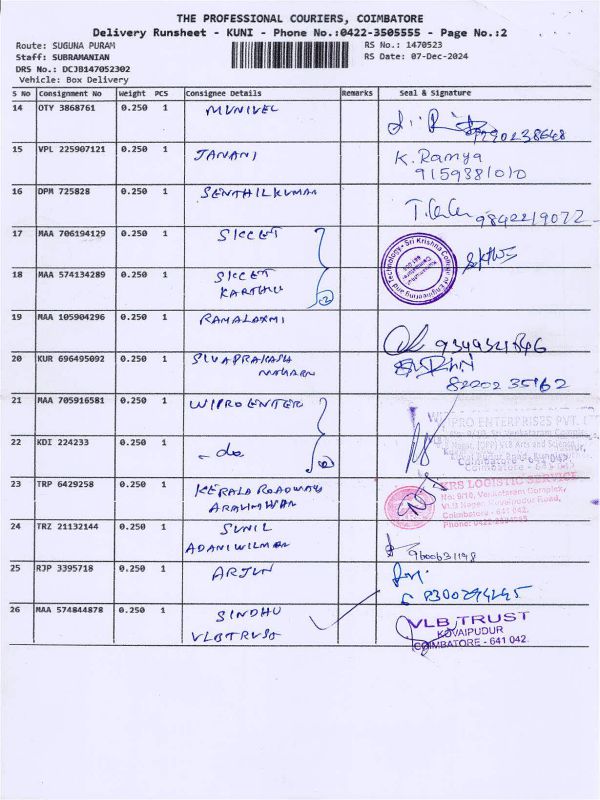 THE PROFESSIONAL COURIERS, COIMBATORE
Delivery Runsheet - KUNI - Phone No.:0422-3505555 - Page No.:2
Route: SUGUNA PURAM
RS No.: 1470523
Staff: SUBRAMANIAN
RS Date: 07-Dec-2024
DRS No.: DCJB147052302
Vehicle: Box Delivery
S No Consignment No Weight PCS Consignee Details Remarks Seal & Signature
14 OTY 3868761 0.250 1 MUNIVEL
9790238648
15 VPL 225907121 0.250 1 JANANI K. Ramya
9159381010
16 DPM 725828 0.250 1 SENTHILKUMAR
9842219072
17 MAA 706194129 0.250 1 SKCET
Sri Krishna College of Engineering and Technology
18 MAA 574134289 0.250 1 SKCET
KARTHI
2
19 MAA 105904296 0.250 1 RAMALAXMI
20 KUR 696495092 0.250 1 SIVAPRAKASH
8220235162
21 MAA 705916581 0.250 1 WIPRO ENTER
WIPRO ENTERPRISES PVT. LTD
22 KDI 224233 0.250 1 - do
2
Coimbatore - 641 042.
23 TRP 6429258 0.250 1 KERALA ROADWAYS
KRS LOGISTIC SERVICE
No: 9/10, Venkataram Complex,
Coimbatore - 641 042.
24 TRZ 21132144 0.250 1 SUNIL
ADANI WILMAR
9600631198
25 RJP 3395718 0.250 1 ARJUN
26 MAA 574844878 0.250 1 SINDHU
VLB TRUST
VLB TRUST
KOVAIPUDUR
COIMBATORE - 641 042.